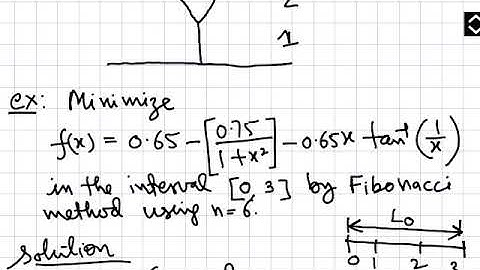 2
1
ex: Minimize
f(x) = 0.65 - [0.75/1+x²] - 0.65x tan⁻¹(1/x)
in the interval [0, 3] by Fibonacci
method using n=6.
L₀
0 1 2 3
Solution